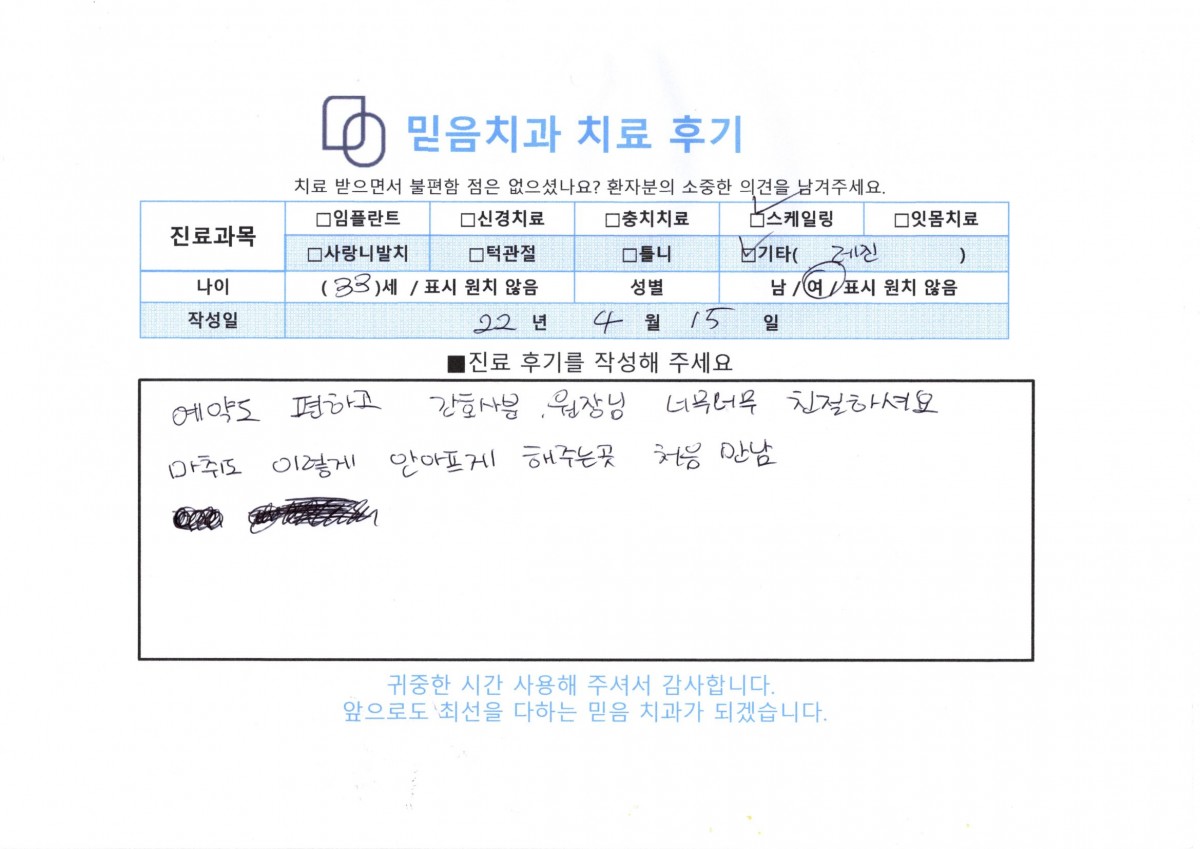 믿음치과 치료 후기
치료 받으면서 불편함 점은 없으셨나요? 환자분의 소중한 의견을 남겨주세요.
진료과목 □임플란트 □신경치료 □충치치료 ☑스케일링 □잇몸치료
□사랑니발치 □턱관절 □틀니 ☑기타( 레진 )
나이 ( 33 )세 / 표시 원치 않음 성별 남 / 여 / 표시 원치 않음
작성일 22 년 4 월 15 일
■진료 후기를 작성해 주세요
예약도 편하고 간호사분, 원장님 너무너무 친절하셔요
마취도 이렇게 안아프게 해주는곳 처음 만남
귀중한 시간 사용해 주셔서 감사합니다.
앞으로도 최선을 다하는 믿음 치과가 되겠습니다.